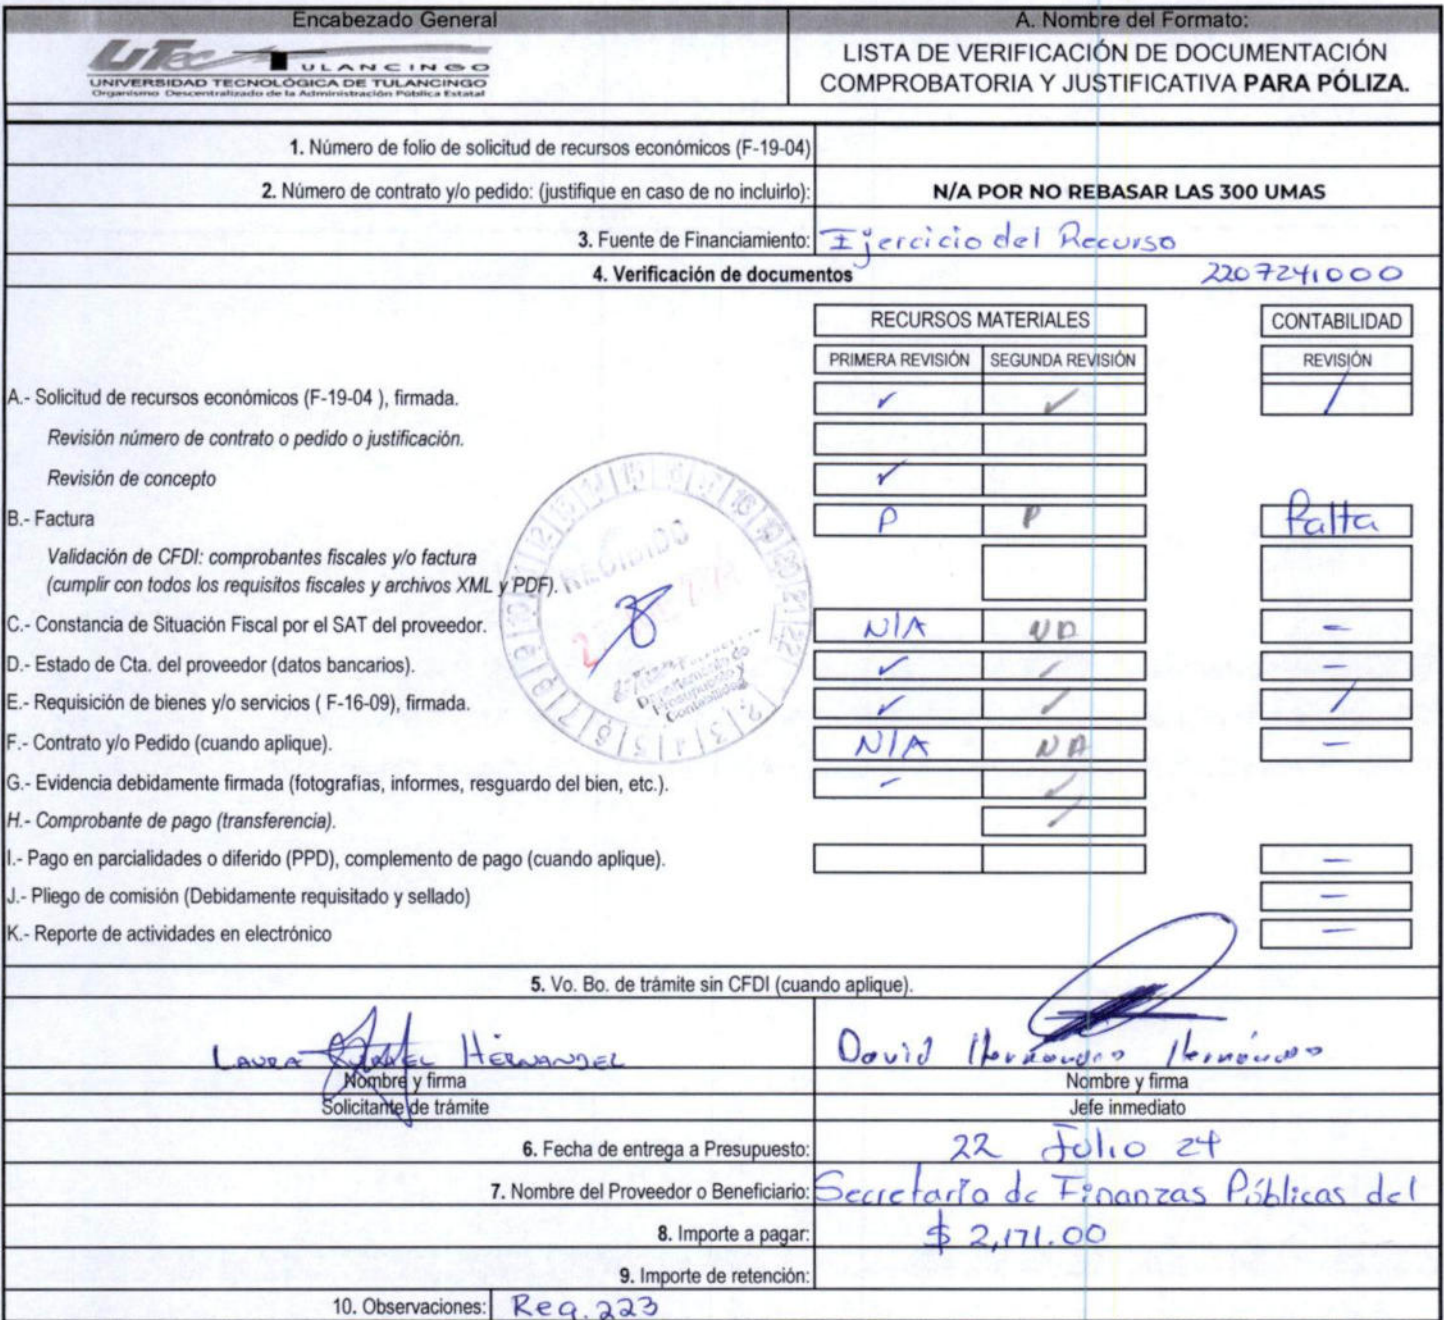 Encabezado General
A. Nombre del Formato:
UTec TULANCINGO
UNIVERSIDAD TECNOLÓGICA DE TULANCINGO
Organismo Descentralizado de la Administración Pública Estatal
LISTA DE VERIFICACIÓN DE DOCUMENTACIÓN
COMPROBATORIA Y JUSTIFICATIVA PARA PÓLIZA.
1. Número de folio de solicitud de recursos económicos (F-19-04)
2. Número de contrato y/o pedido: (justifique en caso de no incluirlo): N/A POR NO REBASAR LAS 300 UMAS
3. Fuente de Financiamiento: Ejercicio del Recurso
4. Verificación de documentos 2207241000
RECURSOS MATERIALES CONTABILIDAD
PRIMERA REVISIÓN SEGUNDA REVISIÓN REVISIÓN
A.- Solicitud de recursos económicos (F-19-04 ), firmada. ✓ ✓ /
Revisión número de contrato o pedido o justificación.
Revisión de concepto ✓
B.- Factura P P Falta
Validación de CFDI: comprobantes fiscales y/o factura
(cumplir con todos los requisitos fiscales y archivos XML y PDF).
RECIBIDO
Departamento de
Presupuesto y
Contabilidad
C.- Constancia de Situación Fiscal por el SAT del proveedor. N/A -
D.- Estado de Cta. del proveedor (datos bancarios). ✓ / -
E.- Requisición de bienes y/o servicios ( F-16-09), firmada. ✓ ✓ /
F.- Contrato y/o Pedido (cuando aplique). N/A NA -
G.- Evidencia debidamente firmada (fotografías, informes, resguardo del bien, etc.). - ✓
H.- Comprobante de pago (transferencia). ✓
I.- Pago en parcialidades o diferido (PPD), complemento de pago (cuando aplique). -
J.- Pliego de comisión (Debidamente requisitado y sellado) -
K.- Reporte de actividades en electrónico -
5. Vo. Bo. de trámite sin CFDI (cuando aplique).
LAURA HERNANDEZ
David Hernández Hernández
Nombre y firma
Nombre y firma
Solicitante de trámite
Jefe inmediato
6. Fecha de entrega a Presupuesto: 22 Julio 24
7. Nombre del Proveedor o Beneficiario: Secretaría de Finanzas Públicas del
8. Importe a pagar: $ 2,171.00
9. Importe de retención:
10. Observaciones: Req. 223